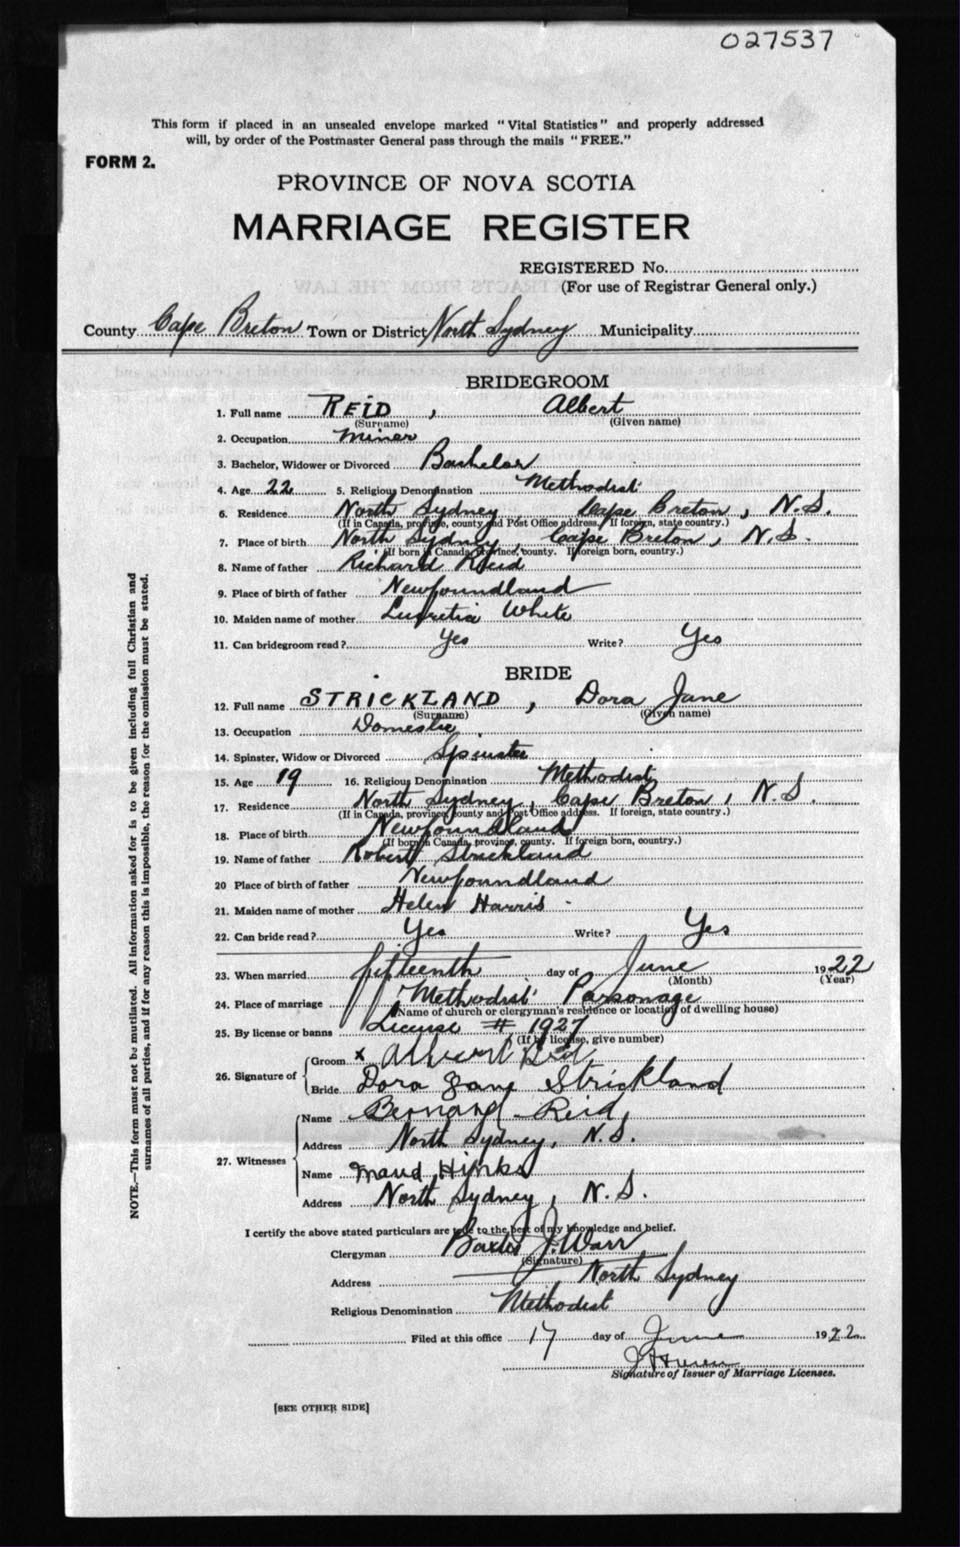 027537
This form if placed in an unsealed envelope marked "Vital Statistics" and properly addressed
will, by order of the Postmaster General pass through the mails "FREE."
FORM 2.
PROVINCE OF NOVA SCOTIA
MARRIAGE REGISTER
REGISTERED No.
(For use of Registrar General only.)
County Cape Breton Town or District North Sydney Municipality
BRIDEGROOM
1. Full name REID , Albert
(Surname) (Given name)
2. Occupation Miner
3. Bachelor, Widower or Divorced Bachelor
4. Age 22 5. Religious Denomination Methodist
6. Residence North Sydney, Cape Breton, N.S.
(If in Canada, province, county and Post Office address. If foreign, state country.)
7. Place of birth North Sydney, Cape Breton, N.S.
(If born in Canada, province, county. If foreign born, country.)
8. Name of father Richard Reid
9. Place of birth of father Newfoundland
10. Maiden name of mother Lucretia White
11. Can bridegroom read? Yes Write? Yes
BRIDE
12. Full name STRICKLAND , Dora Jane
(Surname) (Given name)
13. Occupation Domestic
14. Spinster, Widow or Divorced Spinster
15. Age 19 16. Religious Denomination Methodist
17. Residence North Sydney, Cape Breton, N.S.
(If in Canada, province, county and Post Office address. If foreign, state country.)
18. Place of birth Newfoundland
(If born in Canada, province, county. If foreign born, country.)
19. Name of father Robert Strickland
20 Place of birth of father Newfoundland
21. Maiden name of mother Helen Harris
22. Can bride read? Yes Write? Yes
23. When married fifteenth day of June 1922
(Month) (Year)
24. Place of marriage Methodist Parsonage
(Name of church or clergyman's residence or location of dwelling house)
25. By license or banns License # 1927
(If by license, give number)
26. Signature of Groom x Albert Reid
Bride Dora Jane Strickland
27. Witnesses Name Bernard Reid
Address North Sydney, N.S.
Name Maud Hinks
Address North Sydney, N.S.
I certify the above stated particulars are true to the best of my knowledge and belief.
Clergyman Baxter J. Warr
(Signature)
Address North Sydney
Religious Denomination Methodist
Filed at this office 17 day of June 1922
Signature of Issuer of Marriage Licenses.
[SEE OTHER SIDE]
NOTE.—This form must not be mutilated. All information asked for is to be given including full Christian and
surnames of all parties, and if for any reason this is impossible, the reason for the omission must be stated.